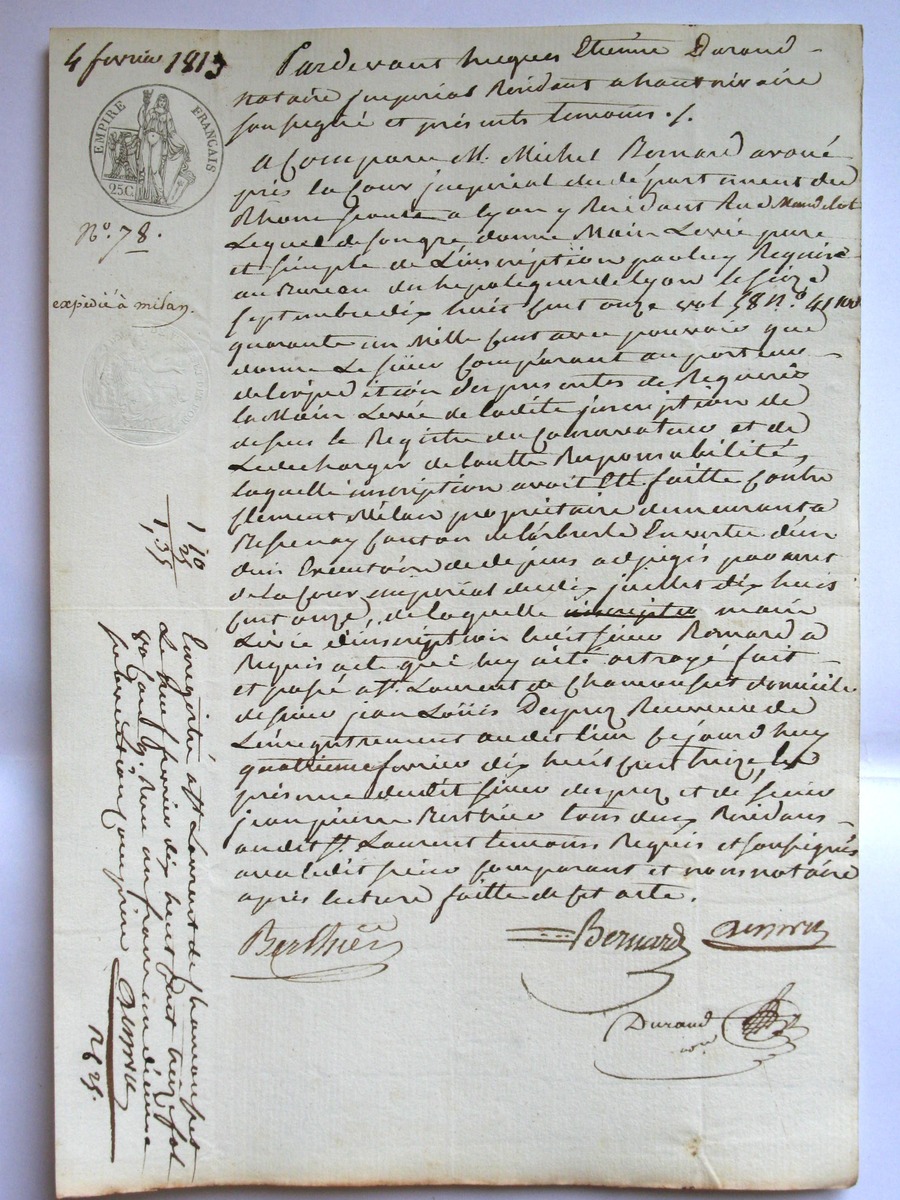 4 fevrier 1813
EMPIRE FRANÇAIS
25C
No. 78.
expedié à milan.
Pardevant hugues Etienne Durand
notaire imperial Residant a hauterivoire
soussigné et présents temoins ./.
a Comparu M. Michel Bernard avoué
près la Cour imperial du département du
Rhone seante a lyon y Residant Rue Mandelot
Lequel de son gre donne Main Levée pure
et simple de L'inscription par luy Requise
au Bureau des hepoteques de lyon le seize
septembre dix huit cent onze vol 58 No. 41100
quarante un Mille cent avec pouvoir que
donne Le sieur Comparant au porteur
de l'expedition des presentes de Requerir
la Main Levée de ladite inscription de
dessus le Registre du Conservateur et de
Le decharger de toutte Responsabilité,
laquelle inscription avoit Eté faitte Contre
Clement Milan propriétaire demeurant a
Bessenay Canton de l'arbresle En vertu d'un
Executoire de depens adjugés par arret
de la Cour imperial du dix juillet dix huit
cent onze, de laquelle inscription main
Levée d'inscription ledit sieur Bernard a
Requis acte qui luy a été octroyé fait
et passé a St. Laurent de Chamousset domicile
de sieur jean Loüis Receveur de
L'enregistrement audit lieu Cejourd'huy
quatrieme fevrier dix huit cent treize, en
présence dudit sieur et de sieur
jean pierre Berthier tous deux Residans
audit St. Laurent temoins Requis et soussignés
avec ledit sieur Comparant et nous notaire
après lecture faitte de cet acte.
Berthier
Bernard
Durand
1 10
25
1,35
Enregistré a St Laurent de Chamousset
Le neuf fevrier dix huit cent treize fol
80 Reçu un franc un dixieme
subvention comprise